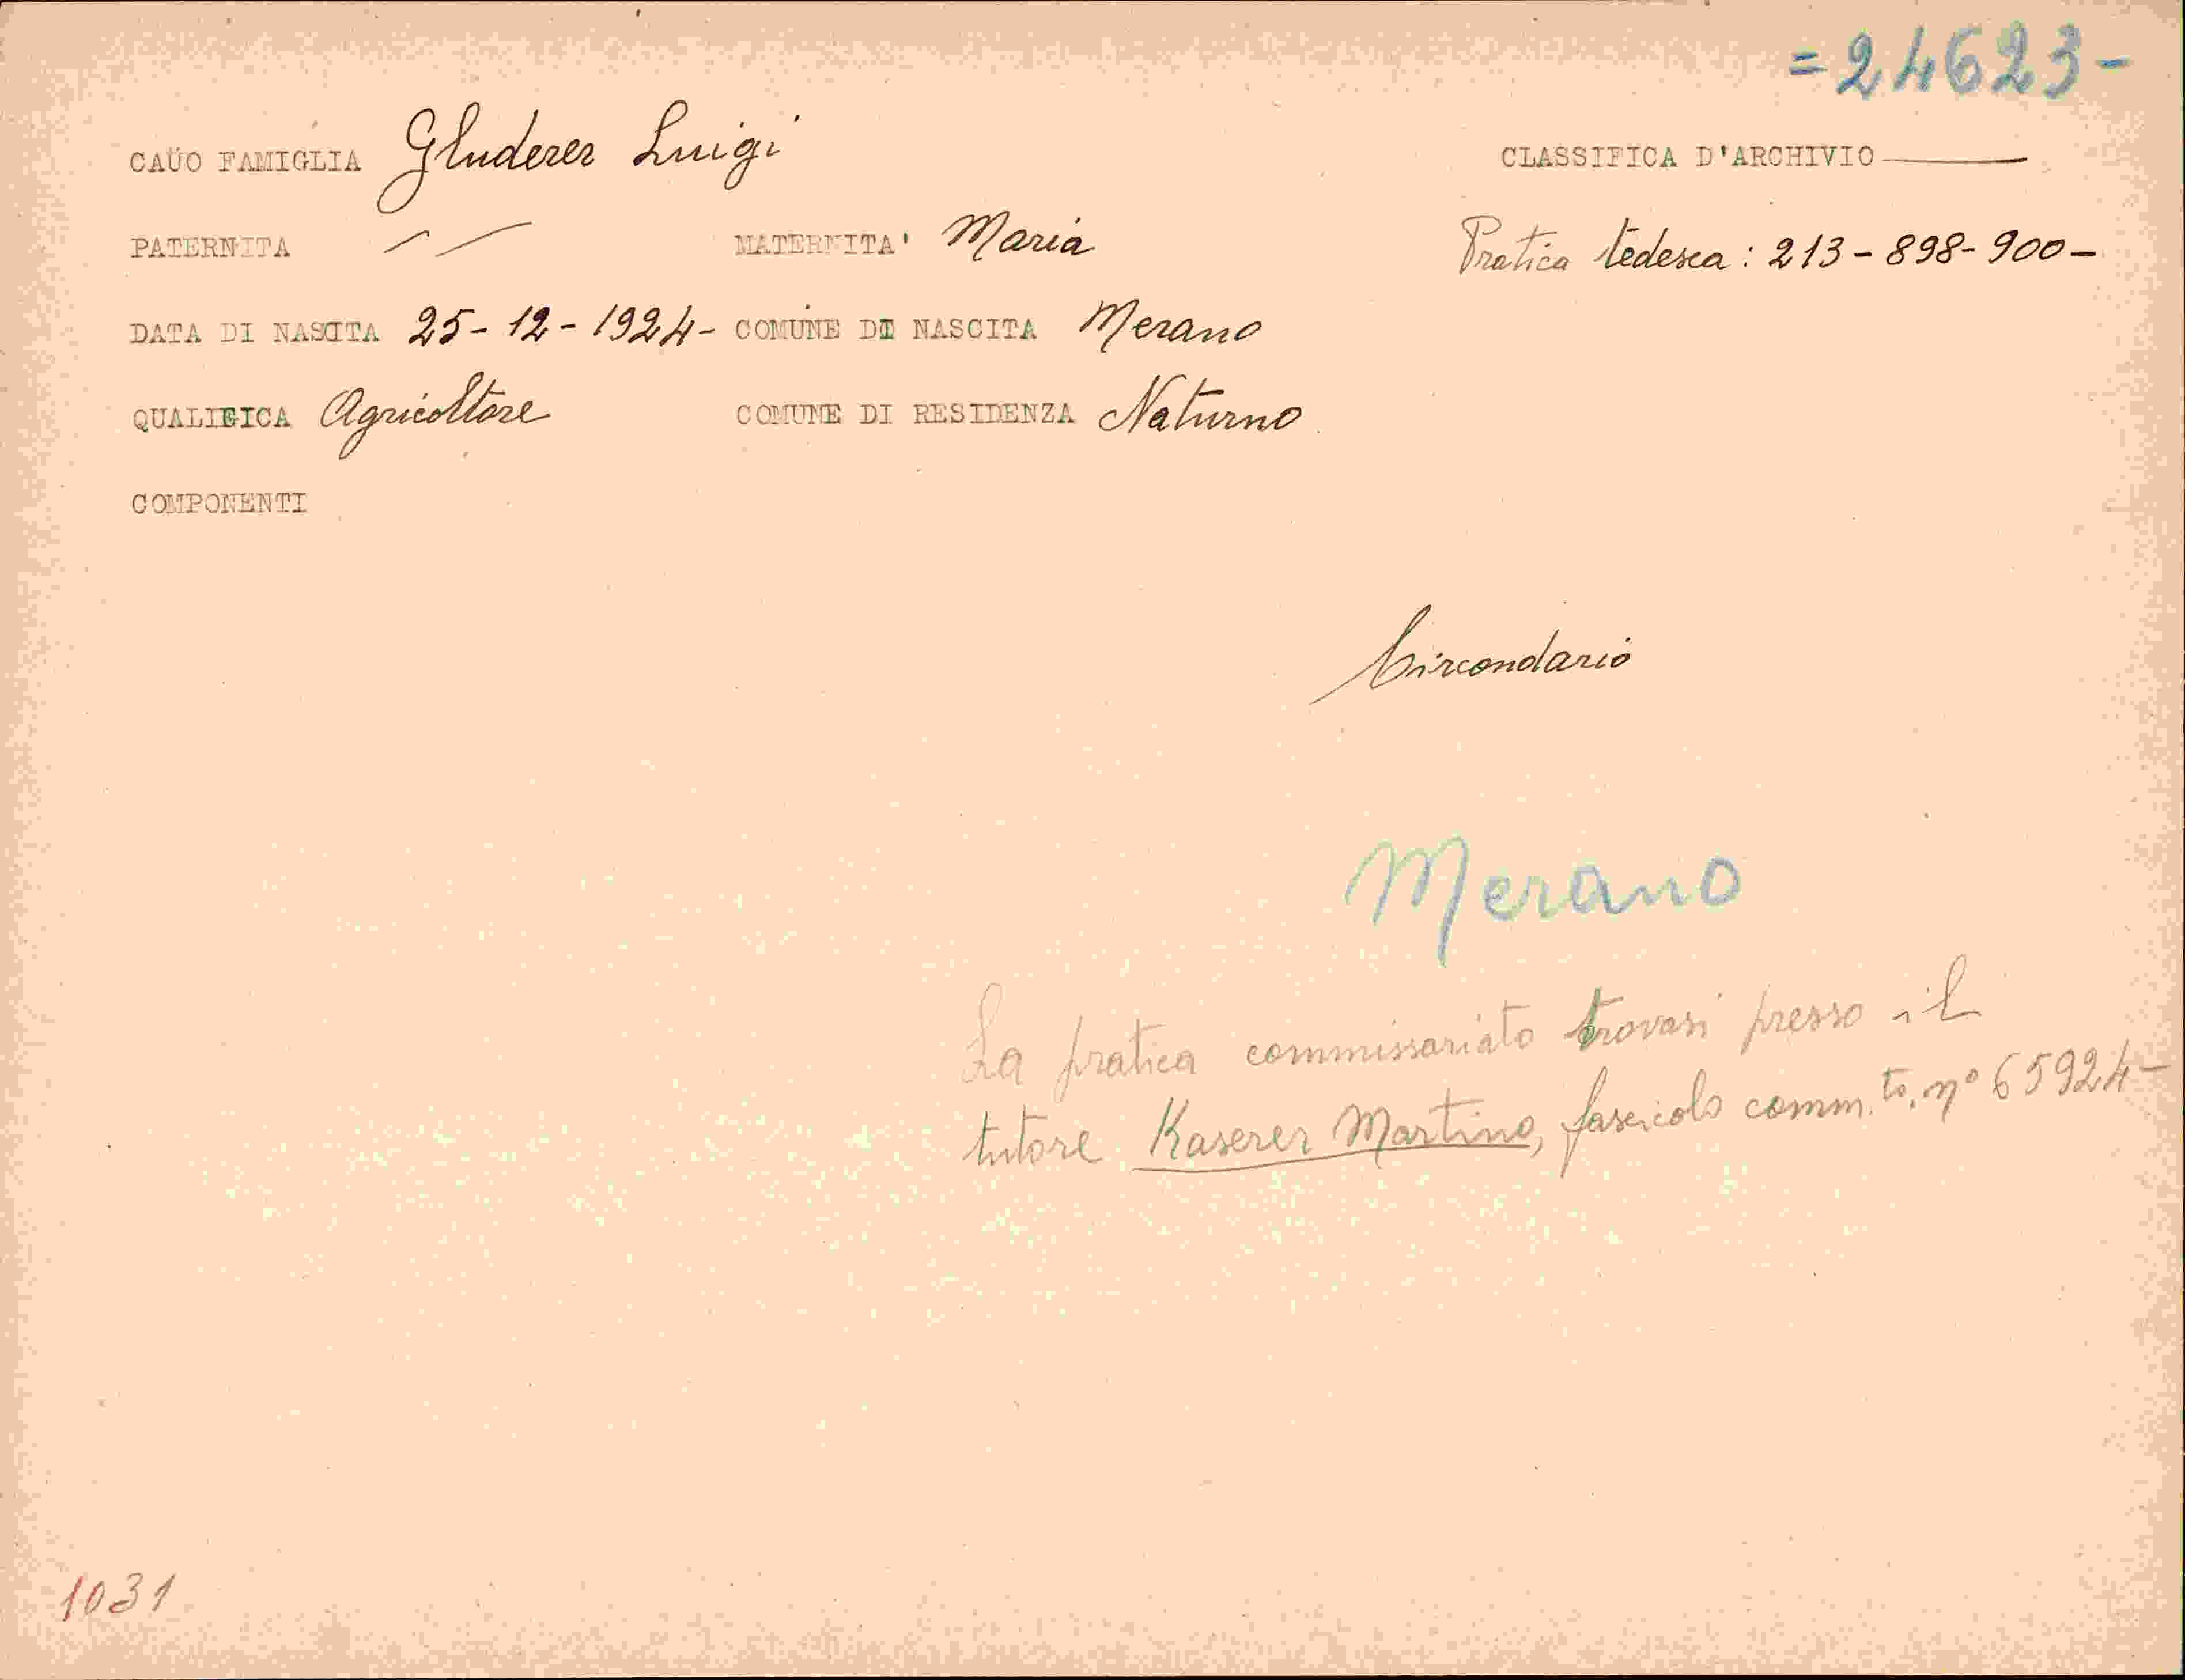 =24623-
CAUO FAMIGLIA Gluderer Luigi
CLASSIFICA D'ARCHIVIO
PATERNITA
MATERNITA' Maria
Pratica tedesca: 213-898-900-
DATA DI NASCITA 25-12-1924- COMUNE DI NASCITA Merano
QUALIFICA Agricoltore COMUNE DI RESIDENZA Naturno
COMPONENTI
Circondario
Merano
La pratica commissariato trovasi presso il
tutore Kaserer Martino, fascicolo comm.to. nº 65924-
1031